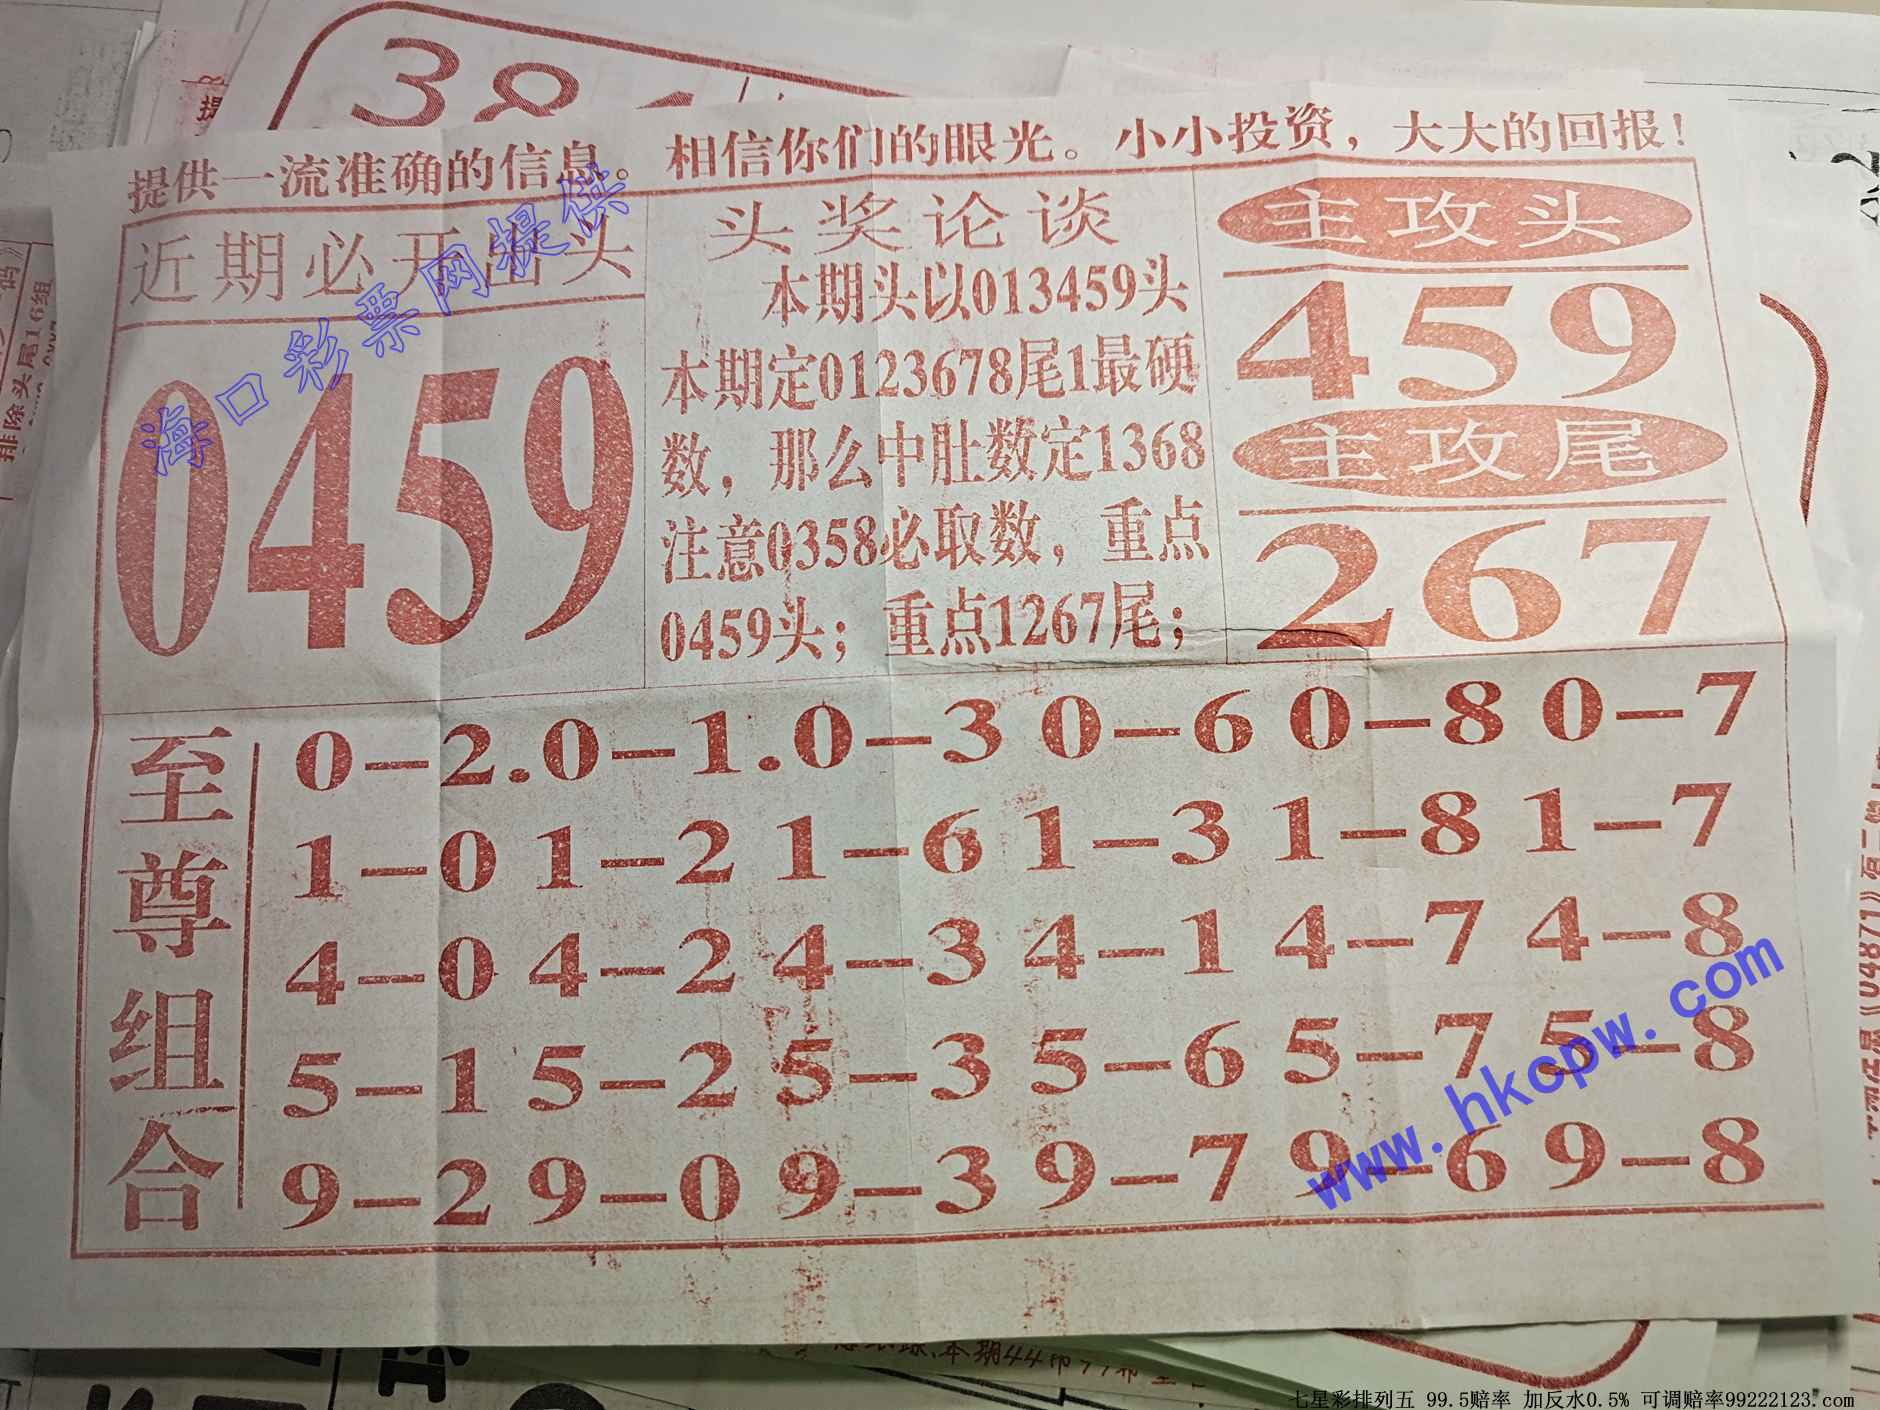 提供一流准确的信息。相信你们的眼光。小小投资，大大的回报！
近期必开出头
0459
头奖论谈
本期头以013459头
本期定0123678尾1最硬
数，那么中肚数定1368
注意0358必取数，重点
0459头；重点1267尾；
主攻头
459
主攻尾
267
至尊组合
0-2.0-1.0-3 0-6 0-8 0-7
1-0 1-2 1-6 1-3 1-8 1-7
4-0 4-2 4-3 4-1 4-7 4-8
5-1 5-2 5-3 5-6 5-7 5-8
9-2 9-0 9-3 9-7 9-6 9-8
海口彩票网提供
www.hkcpw.com
排除头尾16组
七星彩排列五 99.5赔率 加反水0.5% 可调赔率99222123.com